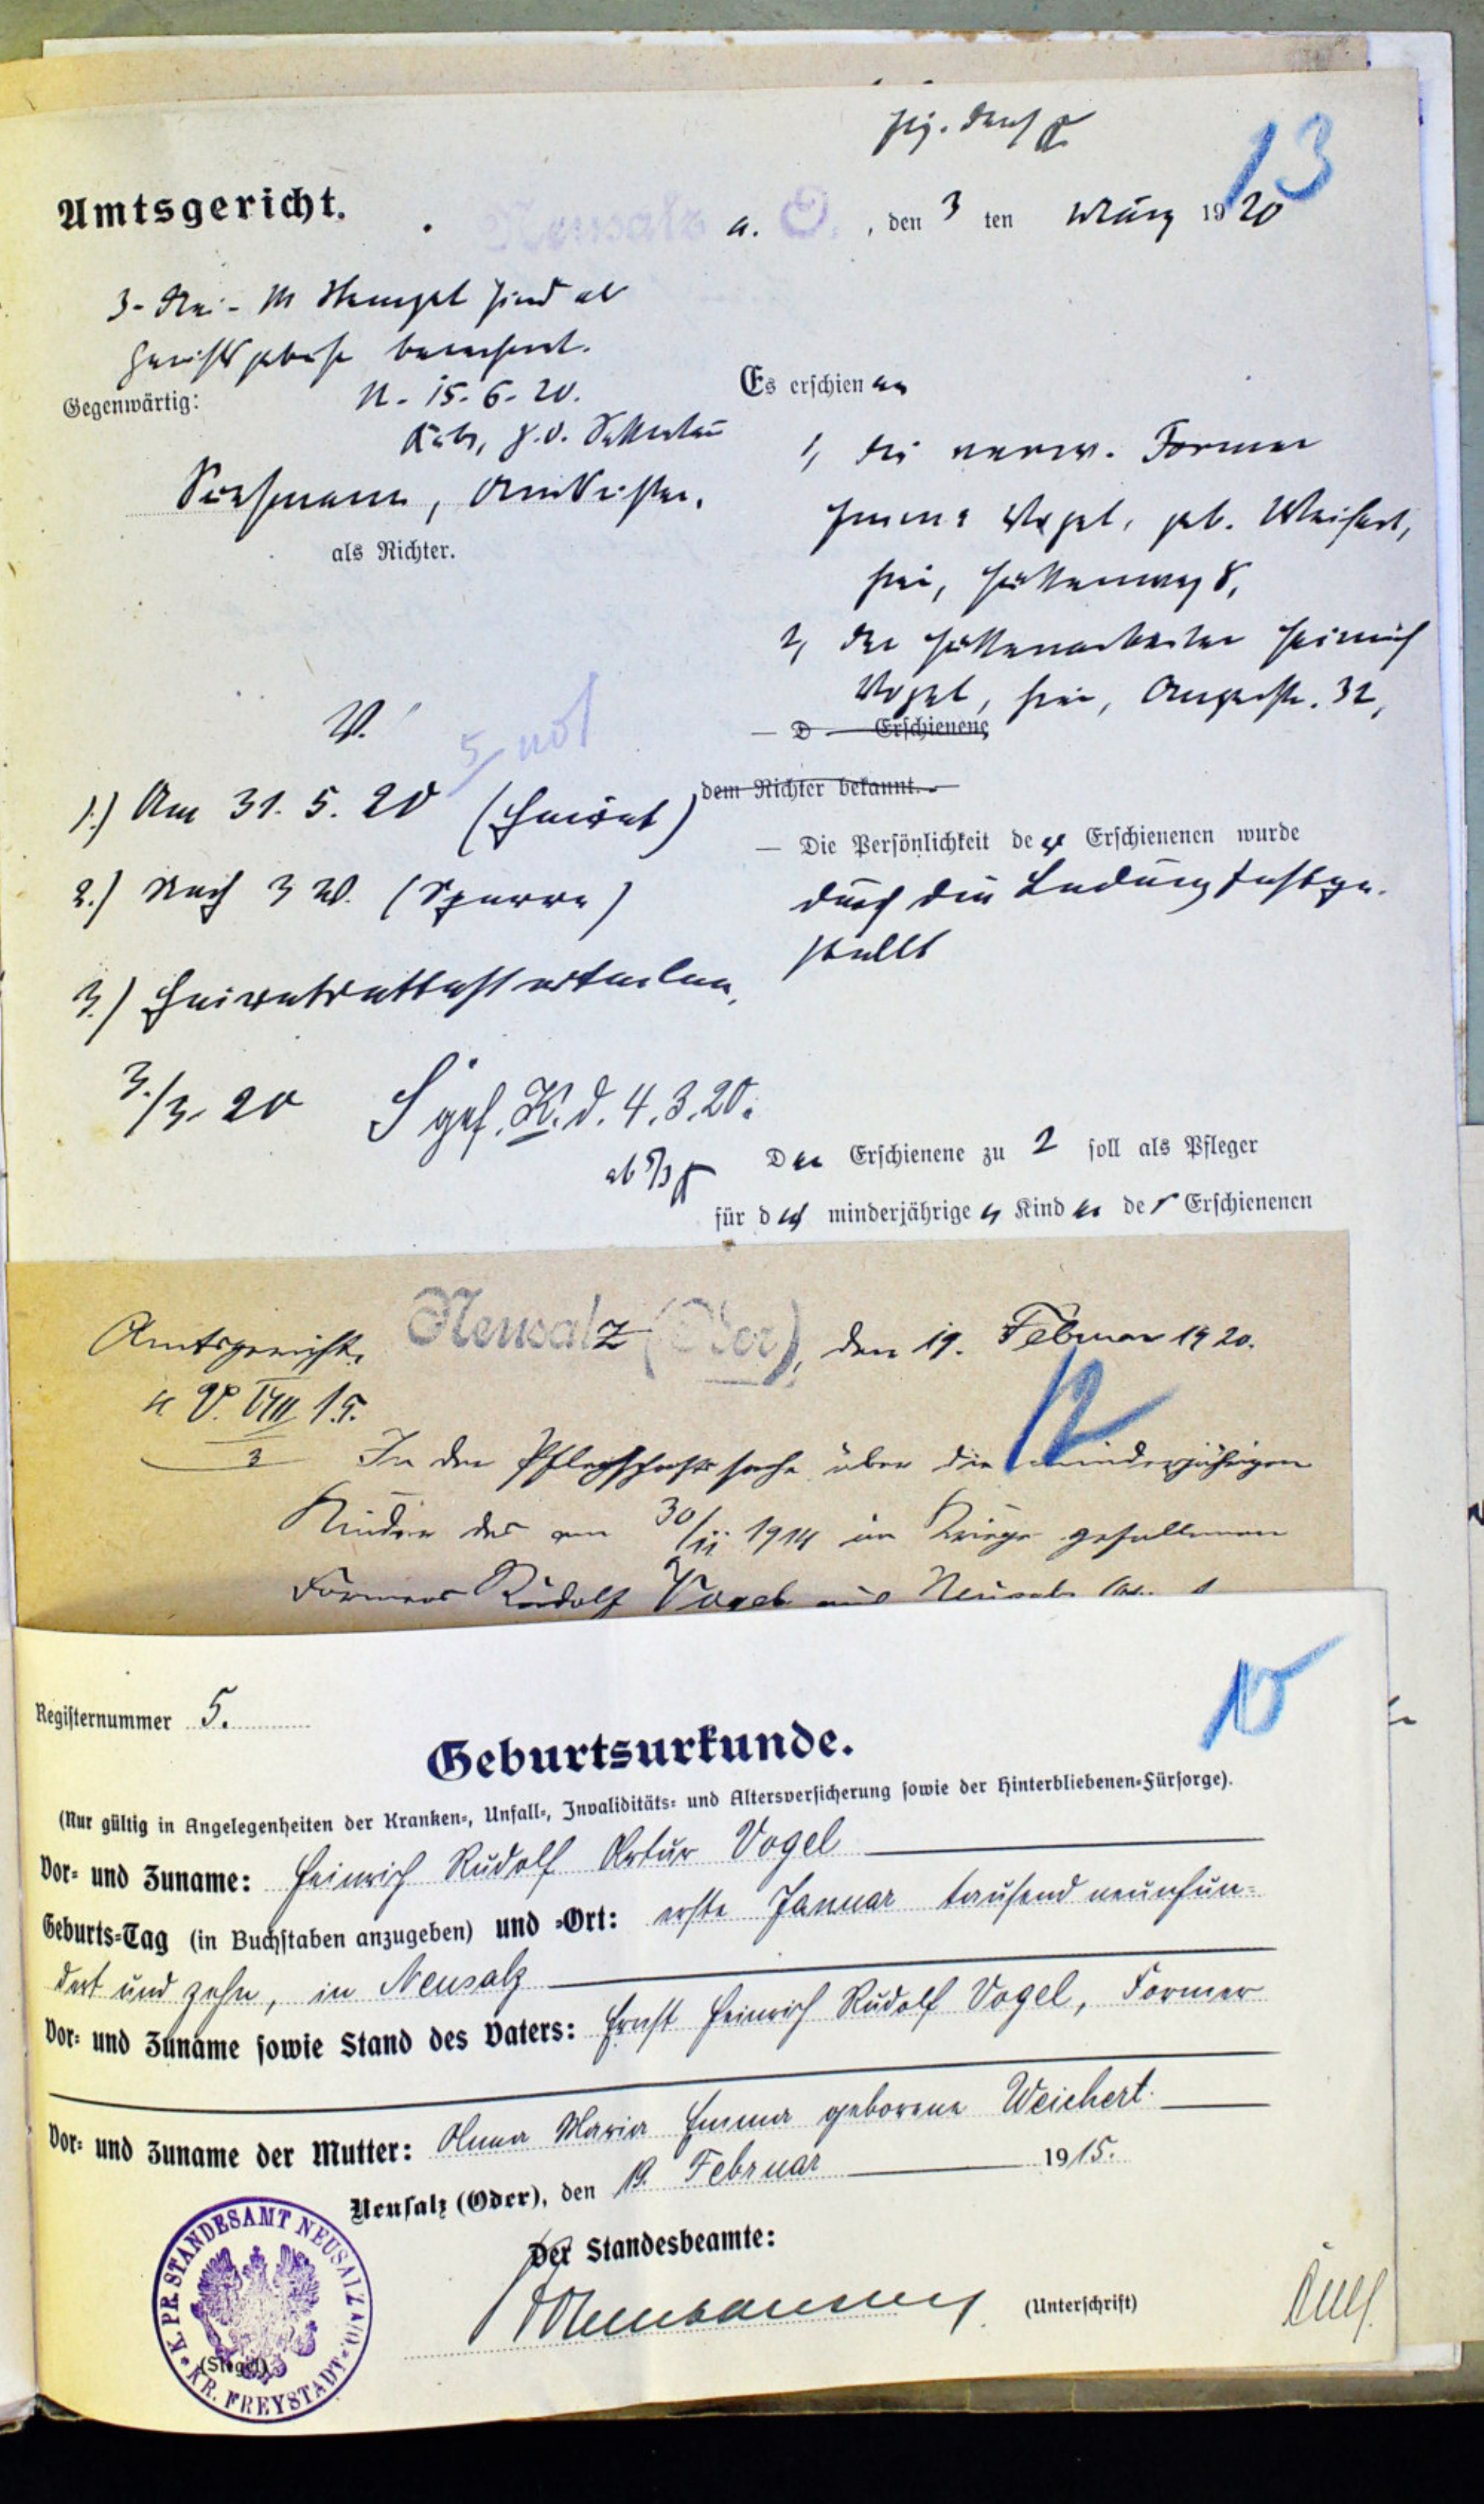 13
Amtsgericht.
Neusalz a. O., den 3 ten März 1920
3 M Stempel sind als
berechnet.
Gegenwärtig:
N. 15.6.20.
als Richter.
Es erschienen
1, die verw. Former
Emma Vogel, geb. Weichert,
hier, Hüttenweg 8,
2, der Hüttenarbeiter Heinrich
Vogel, hier, Auguststr. 32,
— D — Erschienene
dem Richter bekannt. —
— Die Persönlichkeit der Erschienenen wurde
durch die Ladung festge-
stellt
V.
1.) Am 31.5.20 (Heirat)
2.) Nach 3 W. (Sperre)
3.) Heiratsattest erteilen.
3./3. 20
gef. K. d. 4.3.20.
ab 5/3
Der Erschienene zu 2 soll als Pfleger
für die minderjährigen Kinder der Erschienenen
Amtsgericht. Neusalz (Oder), den 19. Februar 1920.
12
4 V. VIII 15.
3
In der Pflegschaftssache über die minderjährigen
Kinder des am 30/11 1914 im Kriege gefallenen
Formers Rudolf Vogel aus Neusalz
15
Registernummer 5.
Geburtsurkunde.
(Nur gültig in Angelegenheiten der Kranken-, Unfall-, Invaliditäts- und Altersversicherung sowie der Hinterbliebenen-Fürsorge).
Vor- und Zuname: Heinrich Rudolf Artur Vogel
Geburts-Tag (in Buchstaben anzugeben) und -Ort: erste Januar tausend neunhun-
dert und zehn, in Neusalz
Vor- und Zuname sowie Stand des Vaters: Ernst Heinrich Rudolf Vogel, Former
Vor- und Zuname der Mutter: Anna Maria Emma geborene Weichert.
Neusalz (Oder), den 19. Februar 1915.
Der Standesbeamte:
(Unterschrift)
K. PR. STANDESAMT NEUSALZ A/O.
KR. FREYSTADT
(Siegel)